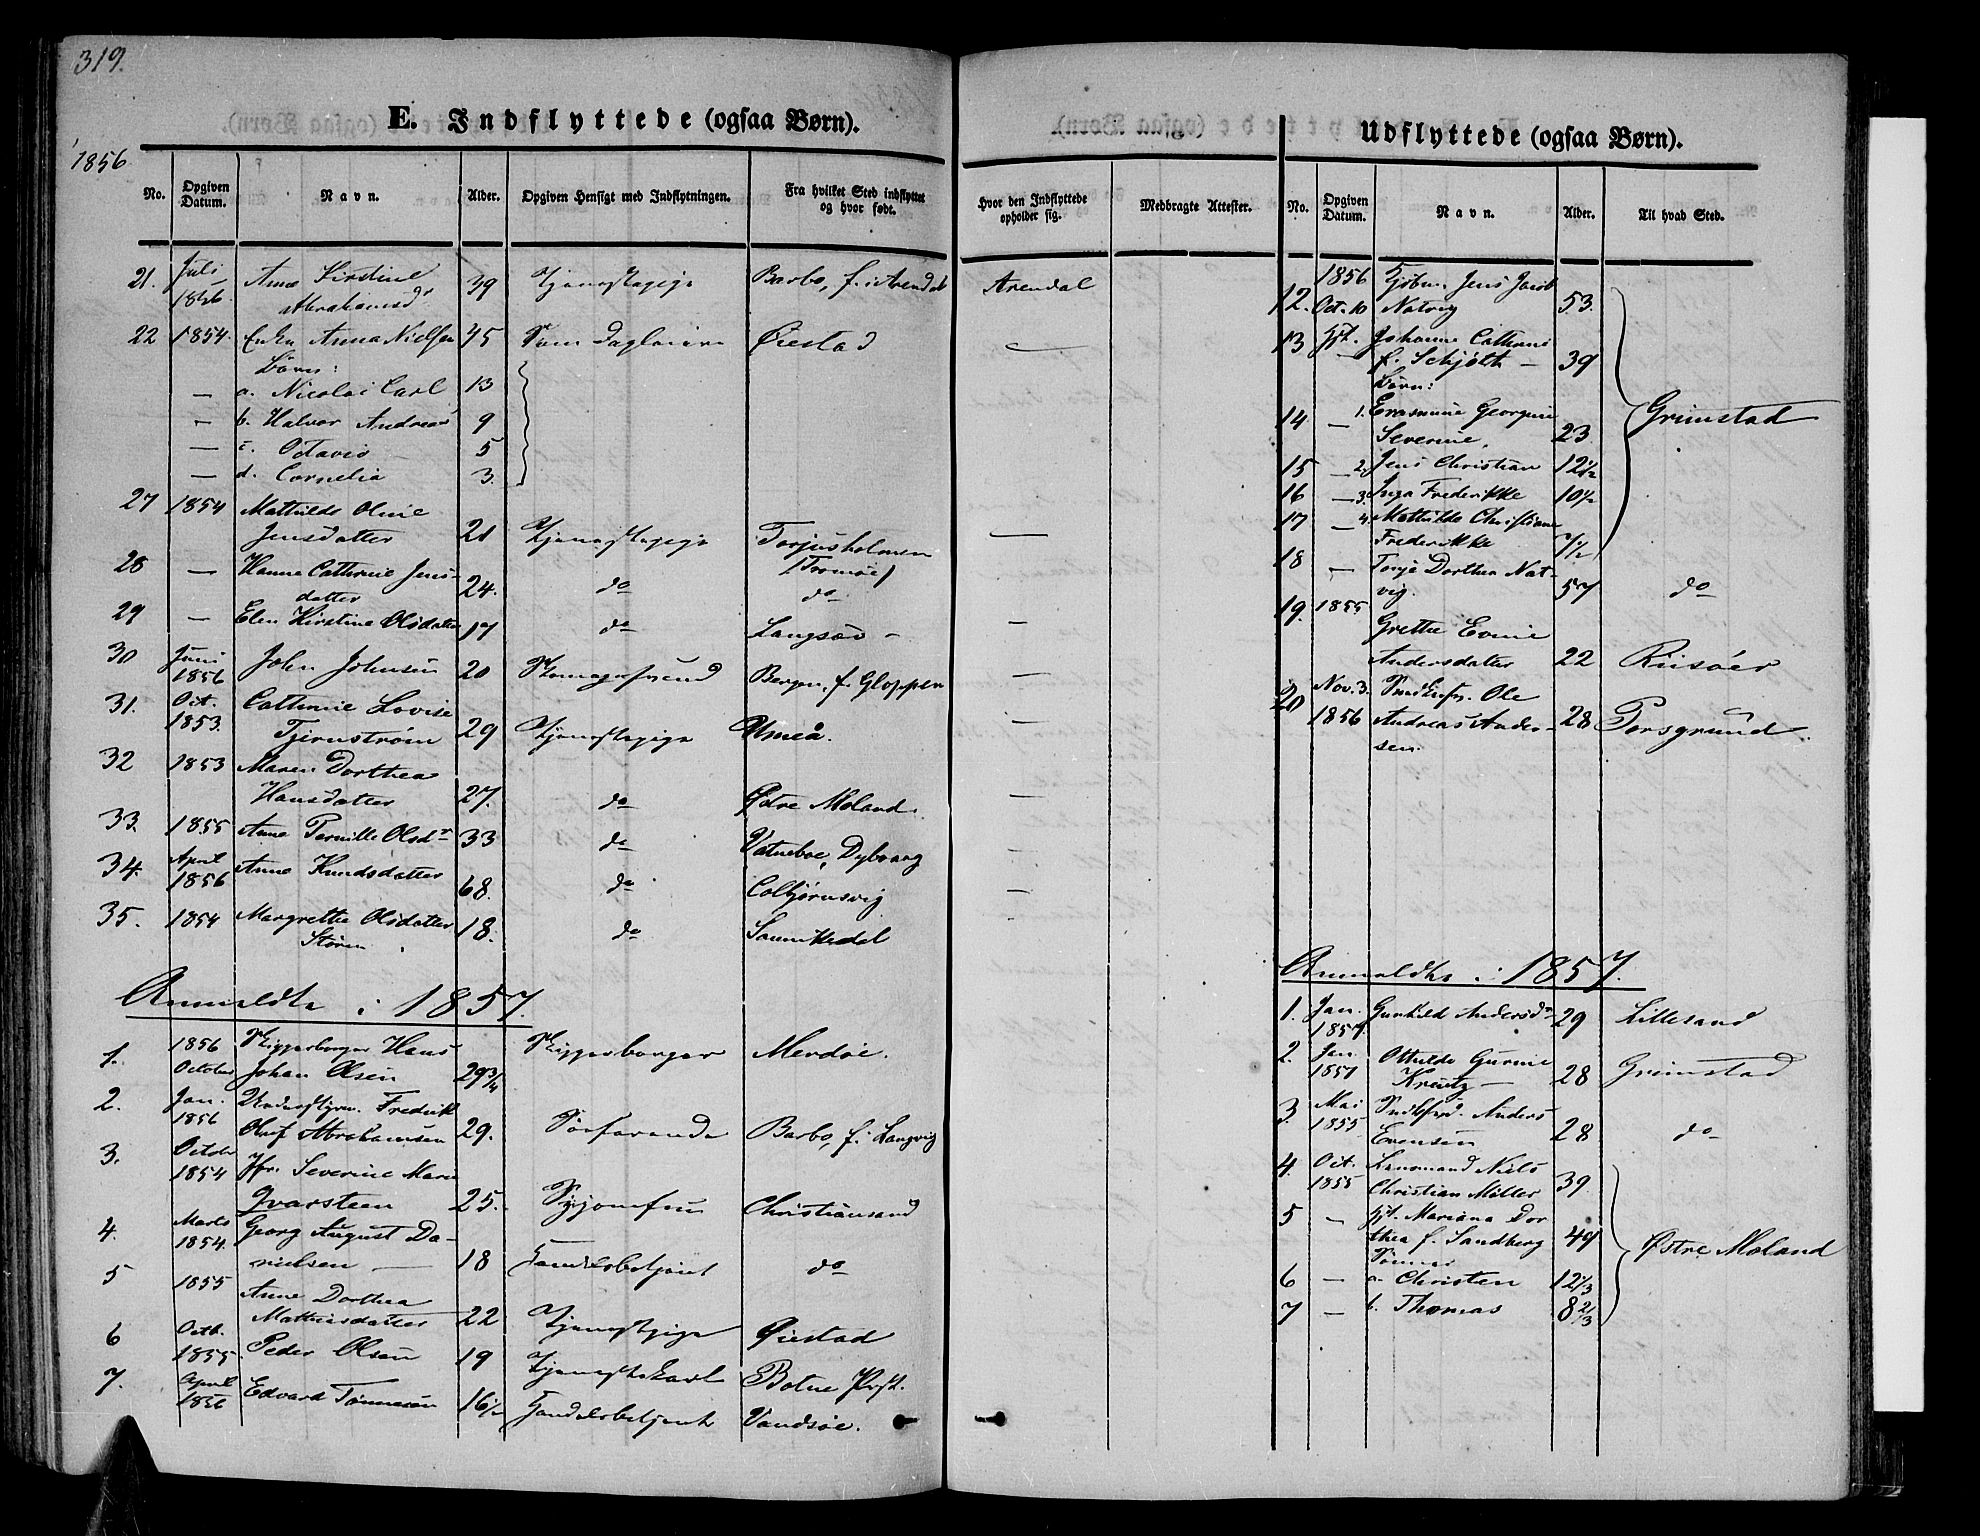 319.
E. Indflyttede (ogsaa Børn).
1856
No. Opgiven Datum. Navn. Alder. Opgiven Hensigt med Indflytningen. Fra hvilket Sted indflyttet og hvor født.
21. Juli 1856. Anne Kirstine Abrahamsdr 39 Tjenestepige Barbo, f. i Arendal
22 1854. Enke Anna Nielsen 45 Som Dagleier Øiestad
Børn:
— a. Nicolai Carl 13
— b. Halvor Andreas 9
— c. Octavio 5
— d. Cornelia 3.
27 1854 Mathilde Oline
Jensdatter 21 Tjenestepige Torjusholmen
(Tromøe)
28 — Hanne Cathrine Jens-
datter 24. do do
29 — Elen Kirstine Olsdatter 17 do Langsæv —
30 Juni 1856 John Johnsen 20 Skomagersvend Bergen, f. Gloppen
31. Oct. 1853. Cathrine Lovise
Tjernstrøm 29 Tjenestepige Umeå.
32 1853 Maren Dorthea
Hansdatter 27. do Østre Moland.
33. 1855 Anne Pernille Olsdr 33 do Vatneboe, Dybvaag
34. April 1856 Anne Knudsdatter 68. do Colbjørnsvig
35. 1854 Margrethe Olsdatter 18. do Sannikedal
Støren
Anmeldte i 1857.
1. 1856 October Skipperborger Hans
Johan Olsen 29 3/4 Skipperborger Merdøe.
2. Jan. 1856 Understyrm. Fredrik
Oluf Abrahamsen 29. Søfarende Barbo, f. Langvig
3. October 1854 Jfr. Severine Marie
Qvarsteen 25. Syjomfru Christiansand
4. Marts 1854. Georg August Da-
nielsen — 18 Handelsbetjent do
5 1855 Anne Dorthea
Mathiesdatter 22 Tjenestpige Øiestad
6 Octb. 1855. Peder Olsen 19 Tjenestekarl Botne Præst.
7. April 1856 Edvard Tønnesen 16 1/2 Handelsbetjent Vandsøe.
Udflyttede (ogsaa Børn).
Hvor den Indflyttede opholder sig. Medbragte Attester. No. Opgiven Datum. Navn. Alder. Til hvad Sted.
Arendal
12. 1856 Oct. 10 Kjøbm. Jens Jacob
Natvig 53.
13 Hst. Johanne Cathrine
— f. Schjølth — 39
Børn:
14 — 1. Erasmine Georgine
Severine, 23 Grimstad
15 — 2. Jens Christian 12 1/2
16 — 3. Inga Frederikke 10 1/2
17 — 4. Mathilde Christiane
Frederikke 7 1/2
18 — Tonje Dorthea Nat-
vig. 57 do
19. 1855 Grethe Evine
Andersdatter 22 Riisøer
20 Nov. 3. 1856 Ole
Andreas Ander- 28 Porsgrund.
sen.
Anmeldte i 1857.
1. Jan. 1857. Gunhild Andersdr 29 Lillesand
2. Jan. 1857 Othilde Gurine
Kreutz — 28 Grimstad
3. Mai 1855 Anders
Evensen 28 do
4. Oct. 1855 Lensmand Niels
Christian Møller 39.
5 — Hst. Mariana Dor
thea f. Sandberg 49 Østre Moland
Sønner
6 — a. Christen 12 1/3
7 — b. Thomas 8 2/3